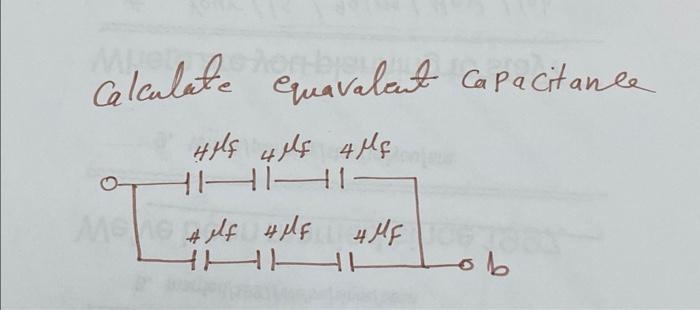 Calculate equavalent capacitance
4μf 4μf 4μf
4μf 4μf 4μF
b